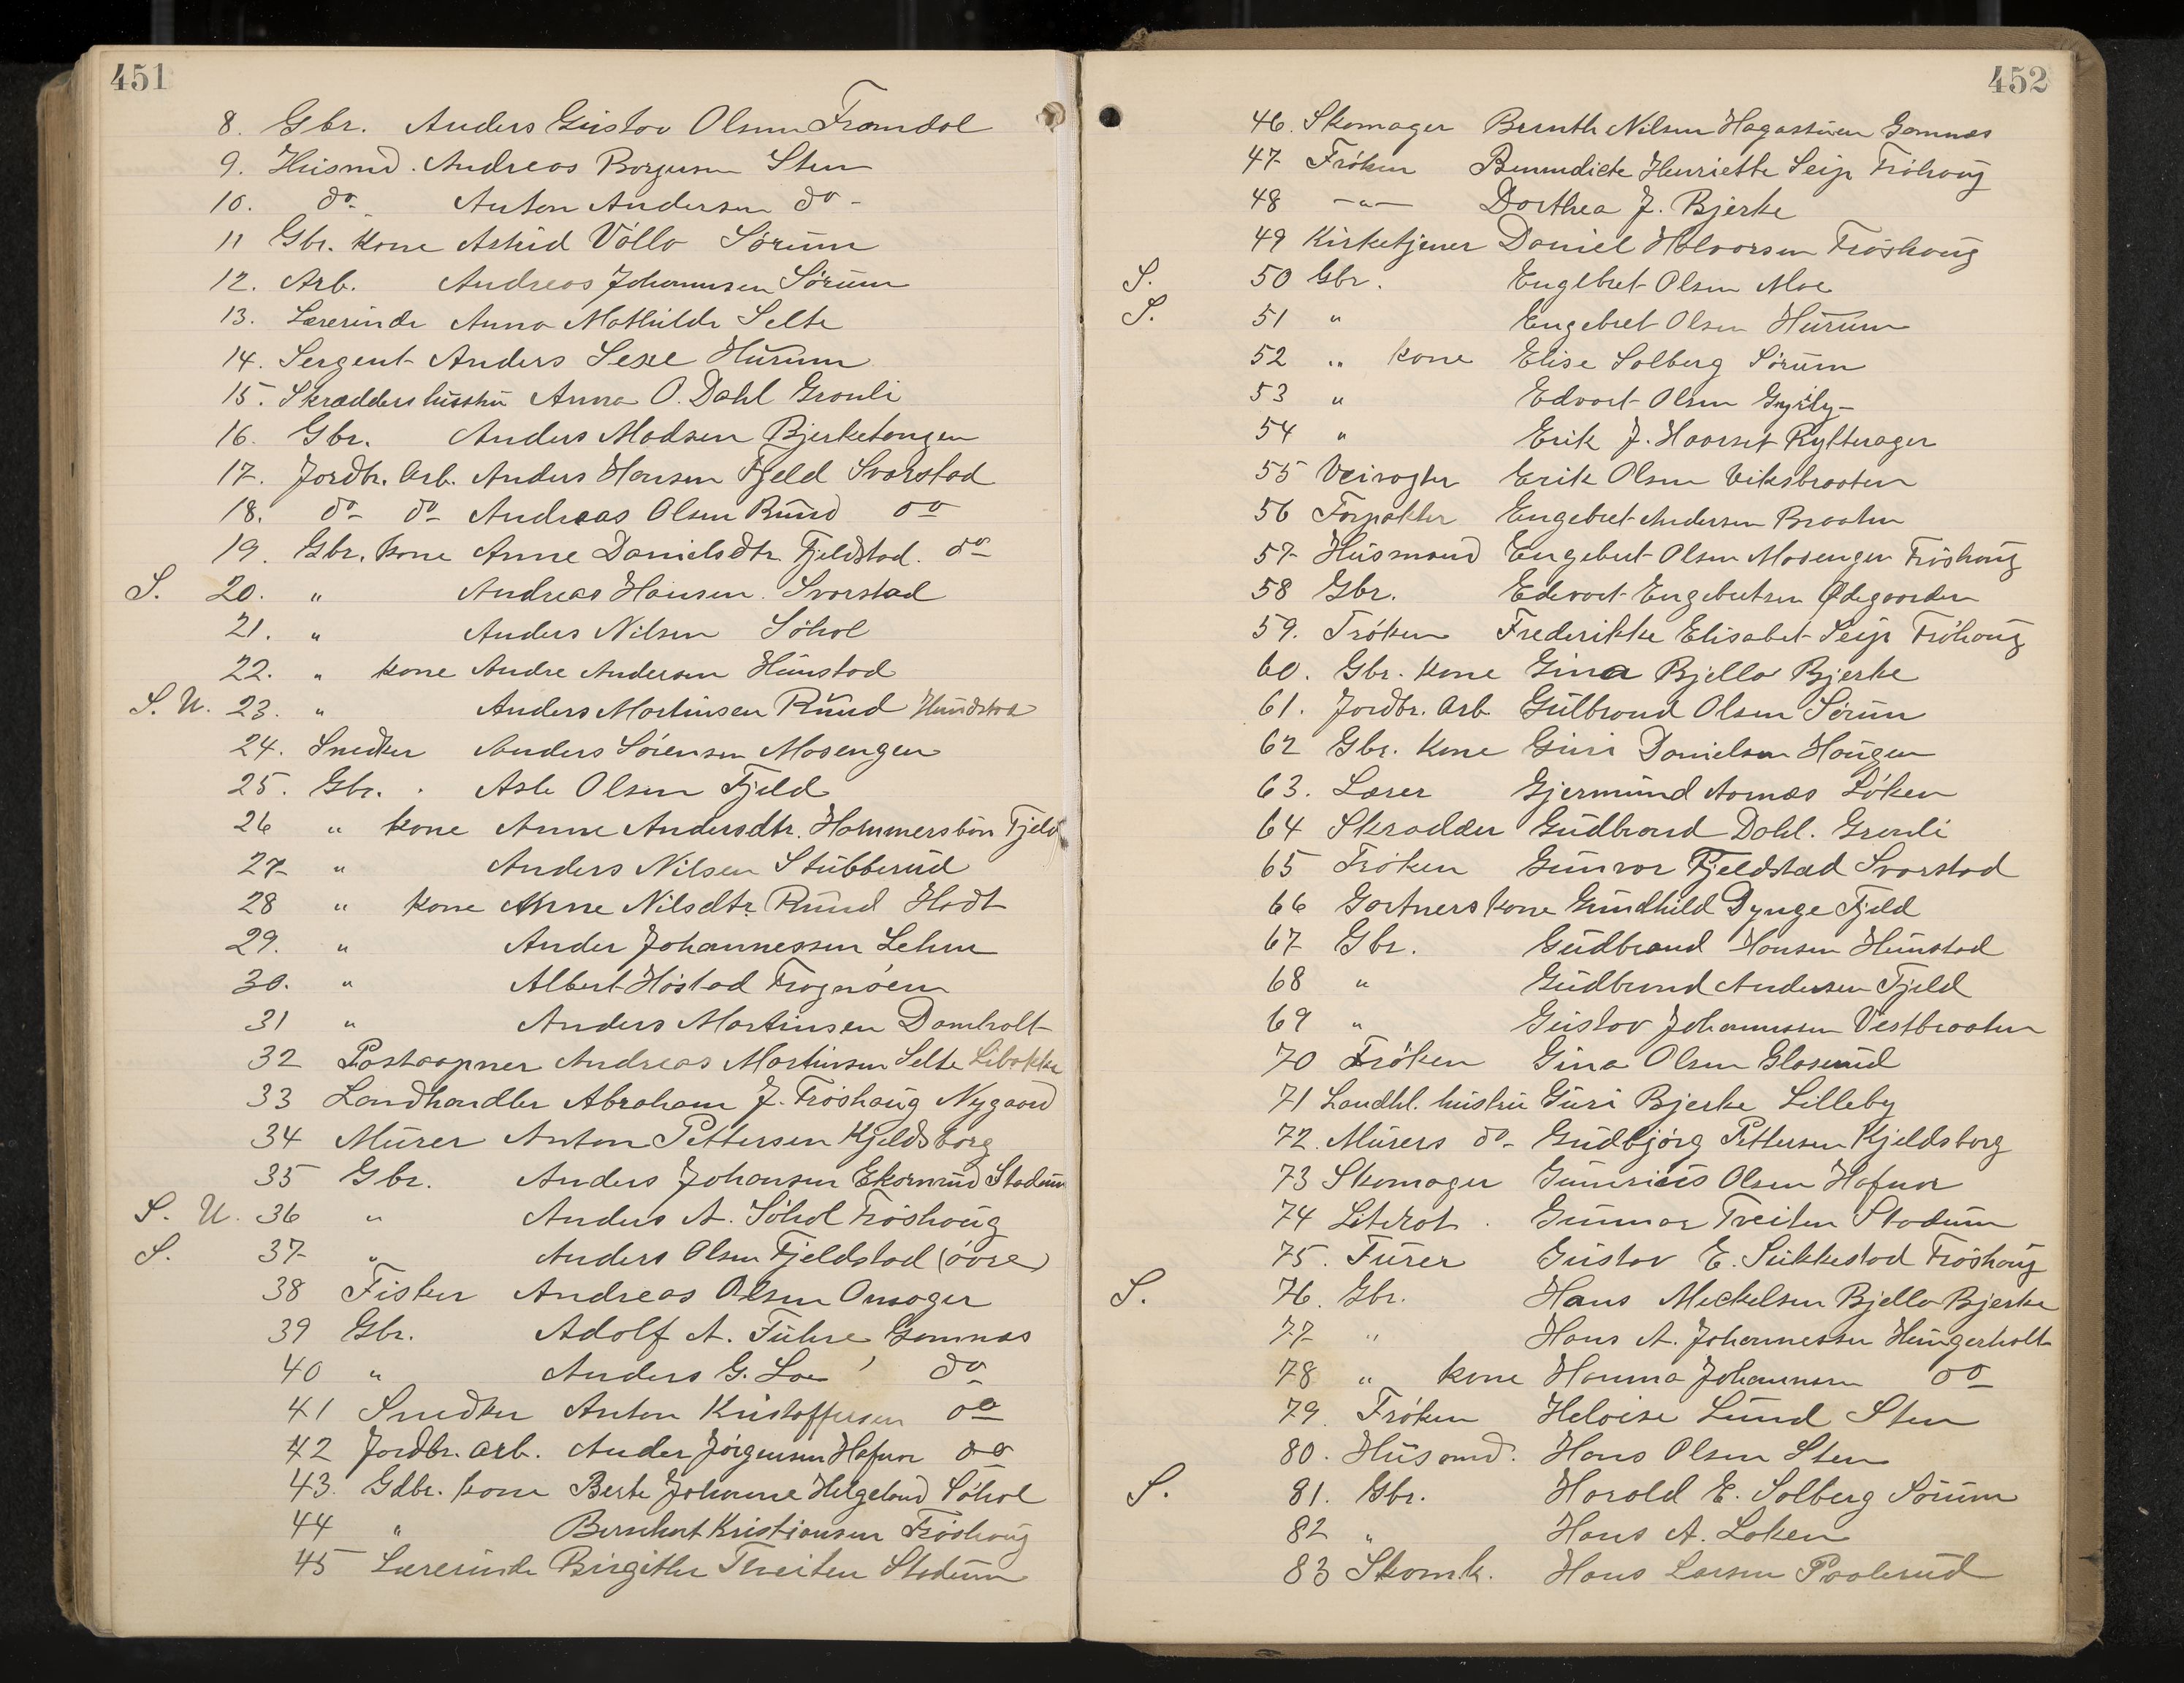 451
8. Gbr. Anders Gustav Olsen Framdal
9. Husmd. Andreas Borgersen Sten
10. do- Anton Andersen do-
11 Gbr. kone Astrid Völlo Sørum
12. Arb. Andreas Johannesen Sörum
13. Lærerinde Anna Mathilde Selte
14. Sergent Anders Sexe Hurum
15. Skrædders hustru Anna O. Dahl Grønli
16. Gbr. Anders Madsen Bjerketangen
17. Jordbr. Arb. Anders Hansen Fjeld Svarstad
18. do- do- Andreas Olsen Rund do
19. Gbr. kone Anne Danielsdtr. Fjeldstad. do
S. 20. " Andreas Hansen Svarstad
21. " Anders Nilsen Söhol
22. " kone Andre Andersen Hunstad
S. U. 23. " Anders Martinsen Rund Hundstad
24. Snedker Anders Sörensen Mosengen
25. Gbr. Asle Olsen Fjeld
26 " kone Anne Andersdtr. Hammersbön Fjeld
27 " Anders Nilsen Stubberud
28 " kone Anne Nilsdtr. Rund Hodt
29. " Ander Johannessen Lehne
30. " Albert Höstad Frognöen
31 " Anders Martinsen Damholt
32 Postaapner Andreas Martinsen Selte Libakke
33 Landhandler Abraham J. Fröshaug Nygaard
34 Murer Anton Pettersen Kjeldsborg
35 Gbr. Anders Johansen Ekornrud Stadum
S. U. 36 " Anders A. Söhol Fröshaug
S. 37 " Anders Olsen Fjeldstad (övre)
38 Fisker Andreas Olsen Onsager
39 Gbr. Adolf A. Fuhre Gomnæs
40 " Anders G. Loe do
41 Snedker Anton Kristoffersen do
42 Jordbr. arb. Ander Jörgensen Hafnor do
43. Gdbr. kone Berte Johanne Helgeland Söhol
44 " Bernhart Kristiansen Fröshaug
45 Lærerinde Birgithe Tveiten Stadum
452
46. Skomager Bernth Nilsen Hagastuen Gomnæs
47 Fröken Bennedicte Henriette Seip Fröhaug
48 -"- Dorthea J. Bjerke
49 Kirketjener Daniel Halvorsen Fröshaug
S. 50 Gbr. Englbret Olsen Moe
S. 51 " Engebret Olsen Hurum
52 " kone Elise Solberg Sörum
53 " Edvart Olsen
54 " Erik J. Haarset Rytterager
55 Veivogter Erik Olsen Viksbraaten
56 Forpakter Engebret Andersen Braaten
57 Husmand Engebret Olsen Mosengen Fröshaug
58 Gbr. Edevart Engebretsen Ødegaarden
59. Fröken Frederikke Elisabet Seip Fröhaug
60. Gbr. kone Gina Bjella Bjerke
61. Jordbr. Arb Gulbrand Olsen Sörum
62 Gbr. kone Guri Danielsen Haugen
63. Lærer Gjermund Aarnæs Löken
64 Skrædder Gudbrand Dahl. Grønli
65 Fröken Gunvor Fjeldstad Svarstad
66 Gartners kone Gundhild Dynge Fjeld
67 Gbr. Gudbrand Hansen Hunstad
68 " Gudbrand Andersen Fjeld
69 " Gustav Johannessen Vestbraaten
70 Fröken Gina Olsen Glaserud
71 Landhl. hustru Guri Bjerke Lilleby
72. Murers do- Gudbjörg Pettersen Kjeldsborg
73 Skomager Gunerius Olsen Hafnor
74 Literat. Gunnar Tveiten Stadum
75. Furer Gustav E. Sukkestad Fröshaug
S. 76. Gbr. Hans Mickelsen Bjella Bjerke
77 " Hans A. Johannessen Hungerholt
78 " kone Hanna Johannesen do
79. Fröken Heloise Lund Sten
80. Husmd. Hans Olsen Sten
S. 81. Gbr. Harald E. Solberg Sörum
82 " Hans A. Loken
83 Skomk. Hans Larsen Paalerud